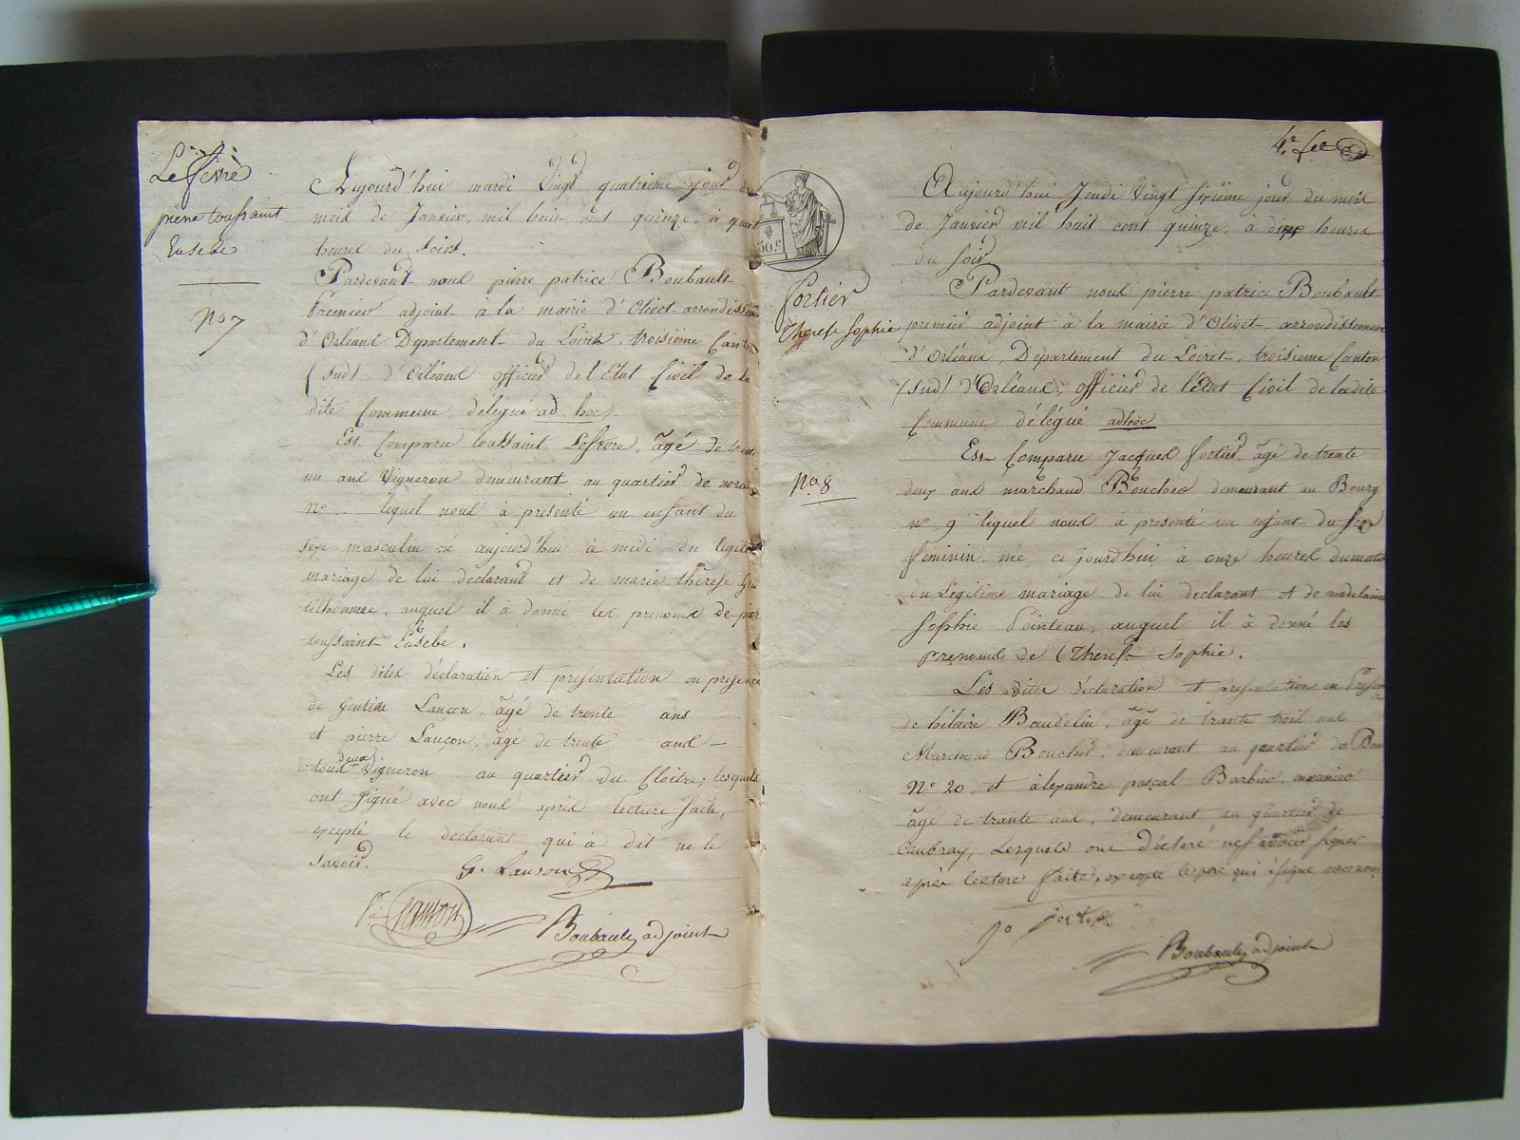 Lefevre
pierre toussaint
Eusebe
No 7
Aujourd'hui mardi vingt quatrieme jour du
mois de Janvier, mil huit cent quinze, à quatre
heures du soir.
Pardevant nous pierre patrice Boubault
premier adjoint à la mairie d'Olivet arrondissem
d'Orléans Département du Loiret, troisieme Canton
(sud) d'Orléans officier de l'Etat Civil de la
dite Commune délégué ad hoc.
Est Comparu toussaint Lefevre, âgé de trente
un ans Vigneron demeurant au quartier de
No lequel nous à présenté un enfant du
sexe masculin né aujourd'hui à midi du legitime
mariage de lui declarant et de marie thérese
auquel il à donné les prenoms de pier
toussaint Eusebe.
Les dites déclaration et présentation en présence
de Gentien Lancon, âgé de trente ans
et pierre Lancon, âgé de trente ans
tous deux Vigneron au quartier du Cloitre; lesquels
ont signé avec nous après lecture faite,
excepté le declarant qui à dit ne le
savoir.
G. Lanson
P. Lanson
Boubault adjoint
4e fet
50 c
fortier
Therese Sophie
No 8
Aujourd'hui Jeudi Vingt sixieme jour du mois
de Janvier mil huit cent quinze, à six heures
du soir
Pardevant nous pierre patrice Boubault
premier adjoint à la mairie d'Olivet arrondissement
d'Orléans, Département du Loiret, troisieme Canton
(sud) d'Orléans, officier de l'état Civil de ladite
Commune délégué adhoc
Est Comparu Jacques fortier âgé de trente
deux ans marchand Boucher demeurant au Bourg
no 9 lequel nous à presenté un enfant du sexe
feminin née ce jourd'hui à onze heures du matin
en Légitime mariage de lui declarant et de madelaine
Sophie Pointeau, auquel il à donné les
prenoms de Therese Sophie.
Les dites declaration et présentation en Présen
de hilaire Baudelin, âgé de trante trois ans
Marchand Boucher, demeurant au quartier du Bour
No 20, et alexandre pascal Barbier
âgé de trante ans, demeurant au quartier de
Caubray, Lesquels ont déclaré ne savoir signer
après lecture faite, excepté le pere qui à signé avec nous
Jo fortier
Boubault adjoint